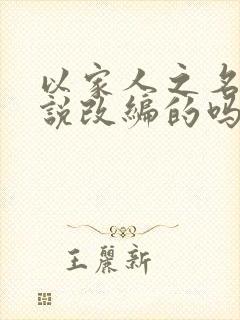 以家人之名
說改編的嗎
王麗新